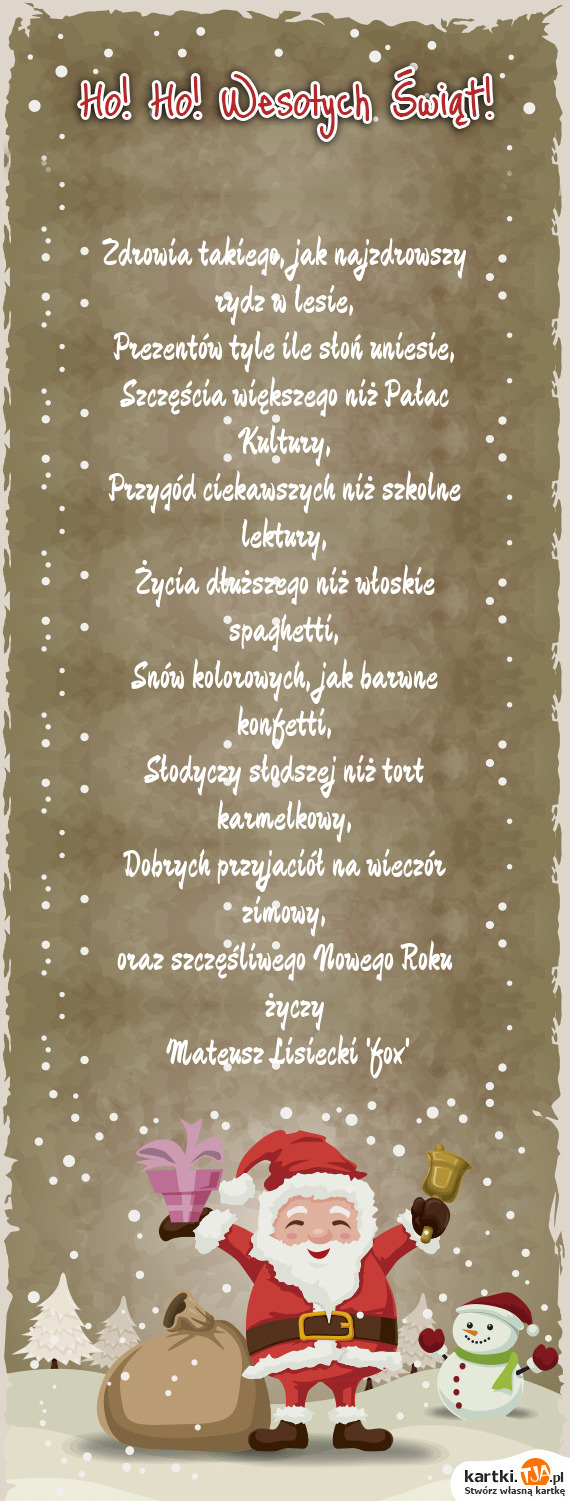 Ho! Ho! Wesołych Świąt!
Zdrowia takiego, jak najzdrowszy
rydz w lesie,
Prezentów tyle ile słoń uniesie,
Szczęścia większego niż Pałac
Kultury,
Przygód ciekawszych niż szkolne
lektury,
Życia dłuższego niż włoskie
spaghetti,
Snów kolorowych, jak barwne
konfetti,
Słodyczy słodszej niż tort
karmelkowy,
Dobrych przyjaciół na wieczór
zimowy,
oraz szczęśliwego Nowego Roku
życzy
Mateusz Lisiecki 'fox'
kartki.TJA.pl
Stwórz własną kartkę